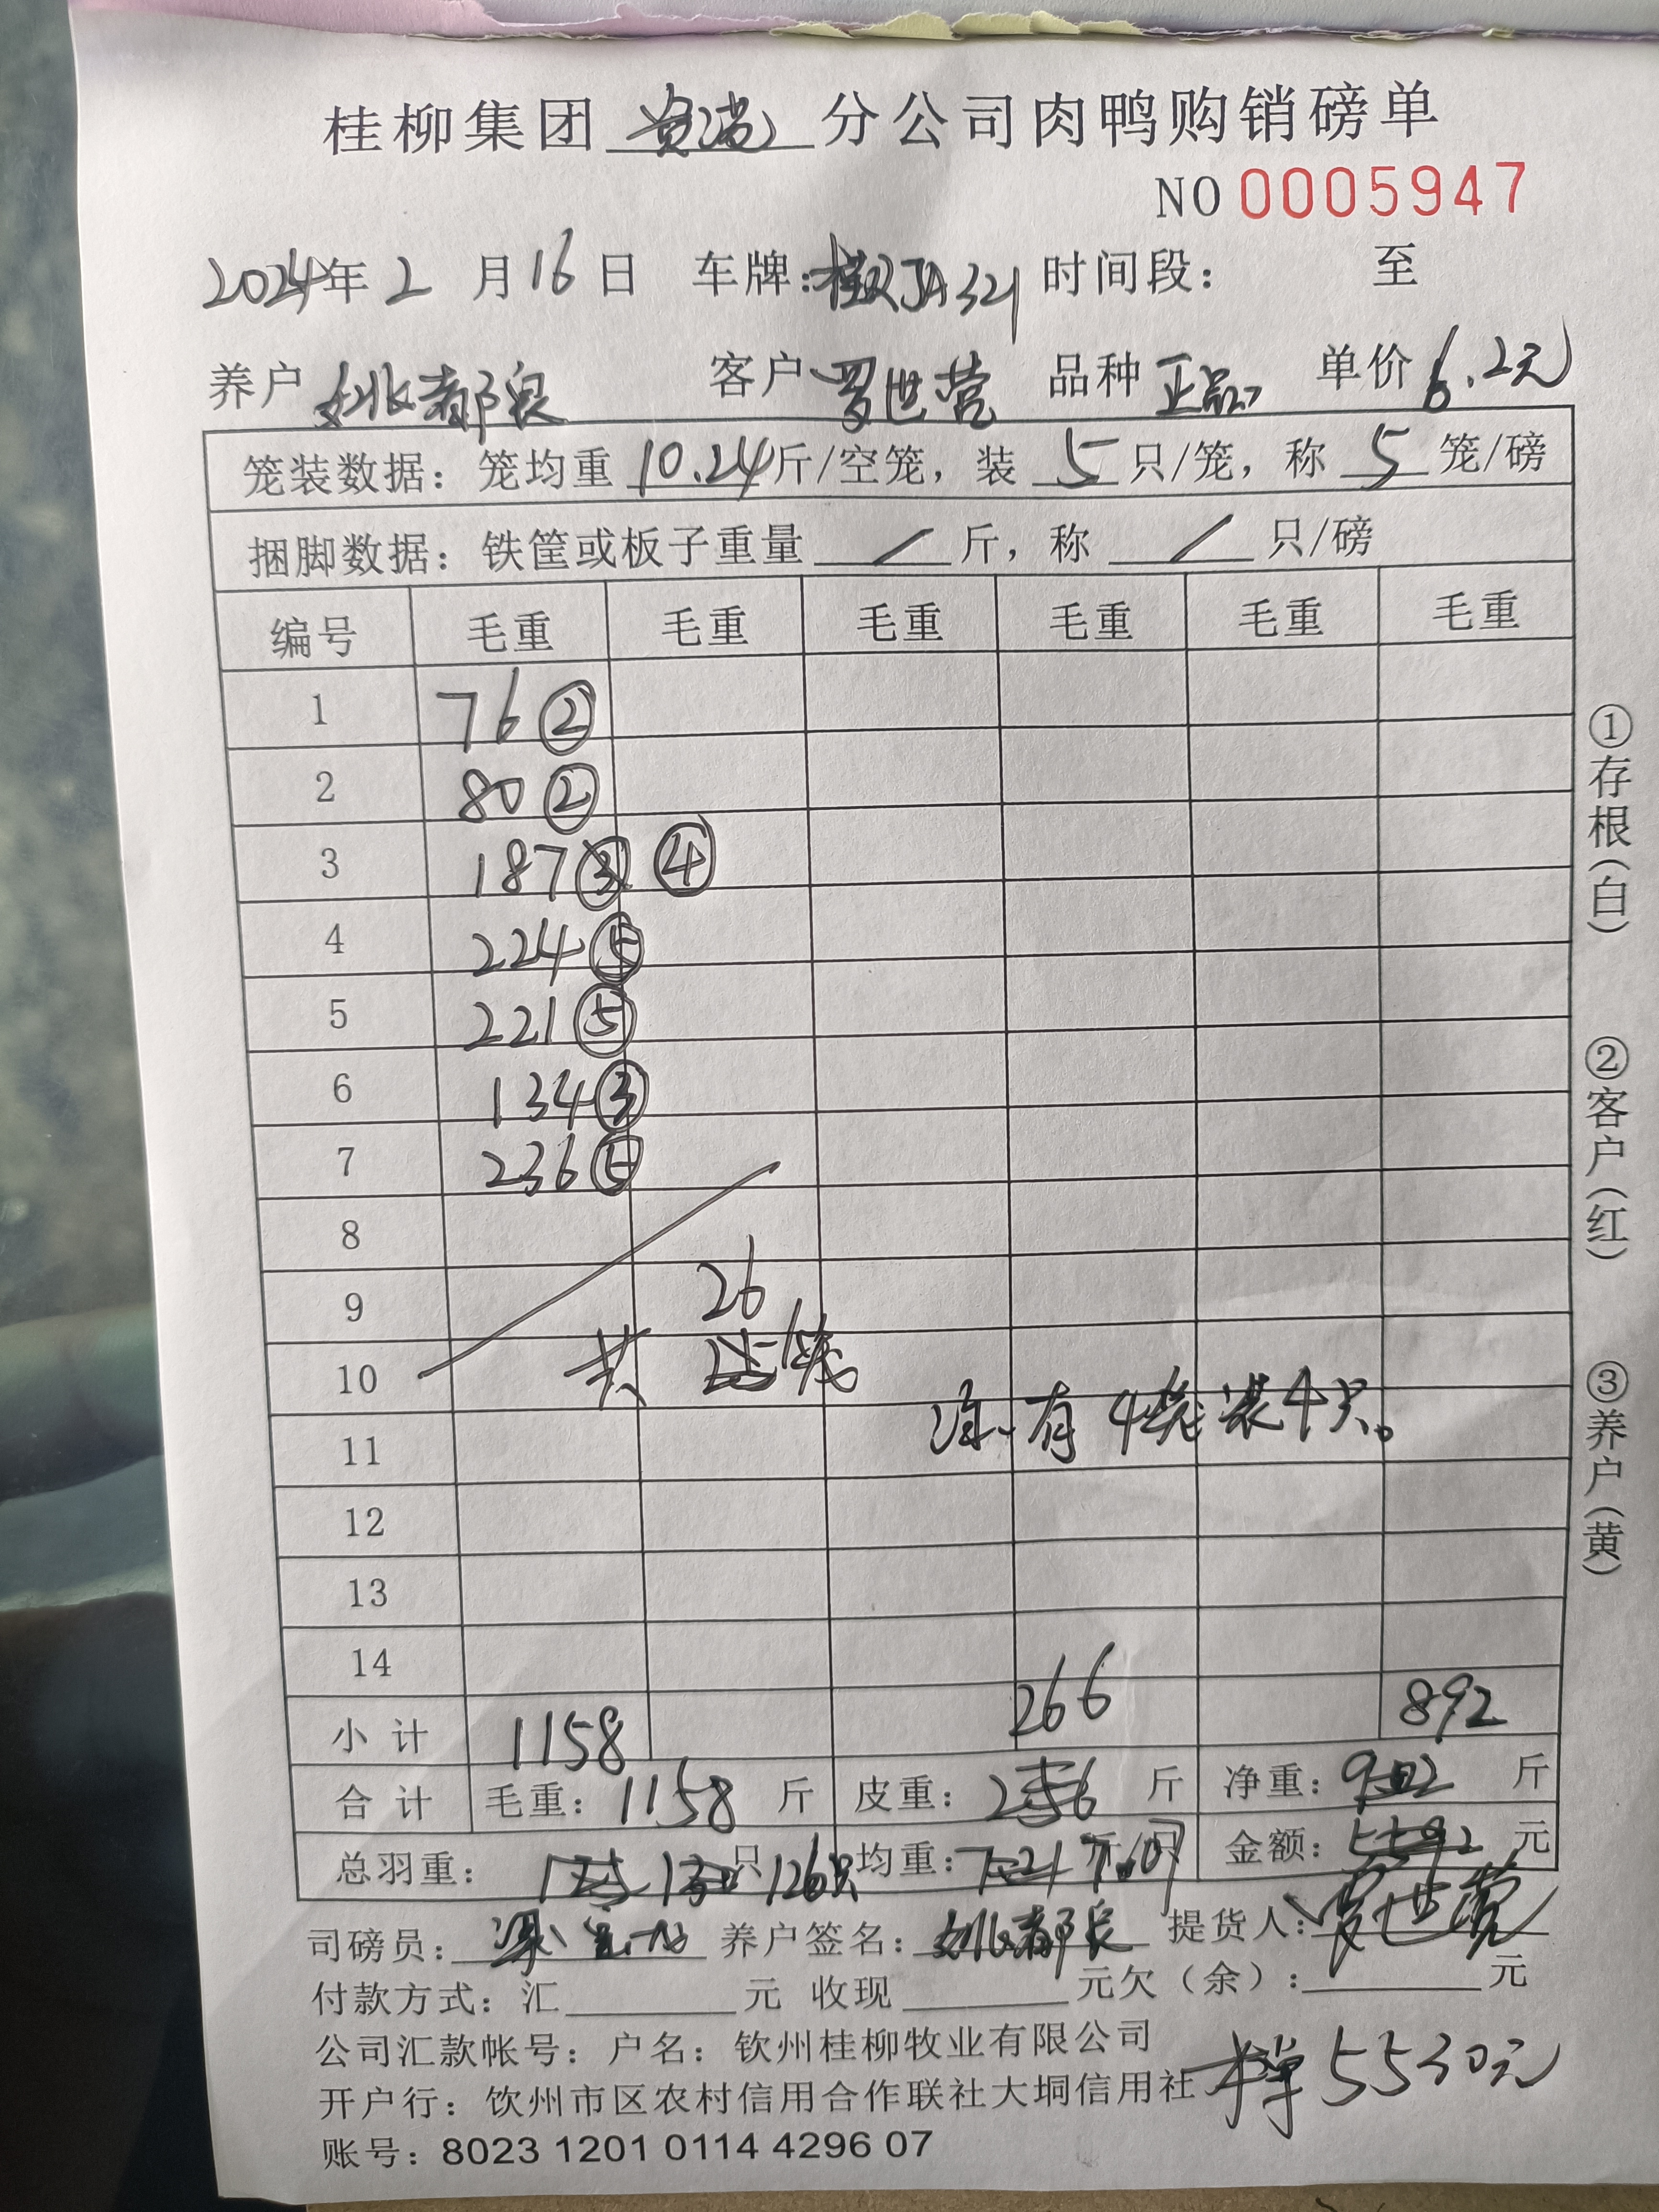 桂柳集团 贵港 分公司肉鸭购销磅单
NO 0005947
2024年 2 月 16 日 车牌: 桂RJA321 时间段: 至
养户 姚都良 客户 罗世营 品种 正品 单价 6.2元
笼装数据: 笼均重 10.24斤/空笼, 装 5 只/笼, 称 5 笼/磅
捆脚数据: 铁筐或板子重量 / 斤, 称 / 只/磅
编号 毛重 毛重 毛重 毛重 毛重 毛重
1 76 ②
2 80 ②
3 187 ③ ④
4 224 ⑤
5 221 ⑤
6 134 ③
7 236 ⑤
8
9 26
10 共 25笼
11 注: 有4笼装4只。
12
13
14
小计 1158 266 892
合计 毛重: 1158 斤 皮重: 256 斤 净重: 902 斤
总羽重: 125 130 只 126只 均重: 7.21 7.07 金额: 5592 元
司磅员: 养户签名: 姚都良 提货人: 罗世营
付款方式: 汇 元 收现 元欠(余): 元
公司汇款帐号: 户名: 钦州桂柳牧业有限公司
开户行: 钦州市区农村信用合作联社大垌信用社
5530元
账号: 8023 1201 0114 4296 07
①存根(白)
②客户(红)
③养户(黄)